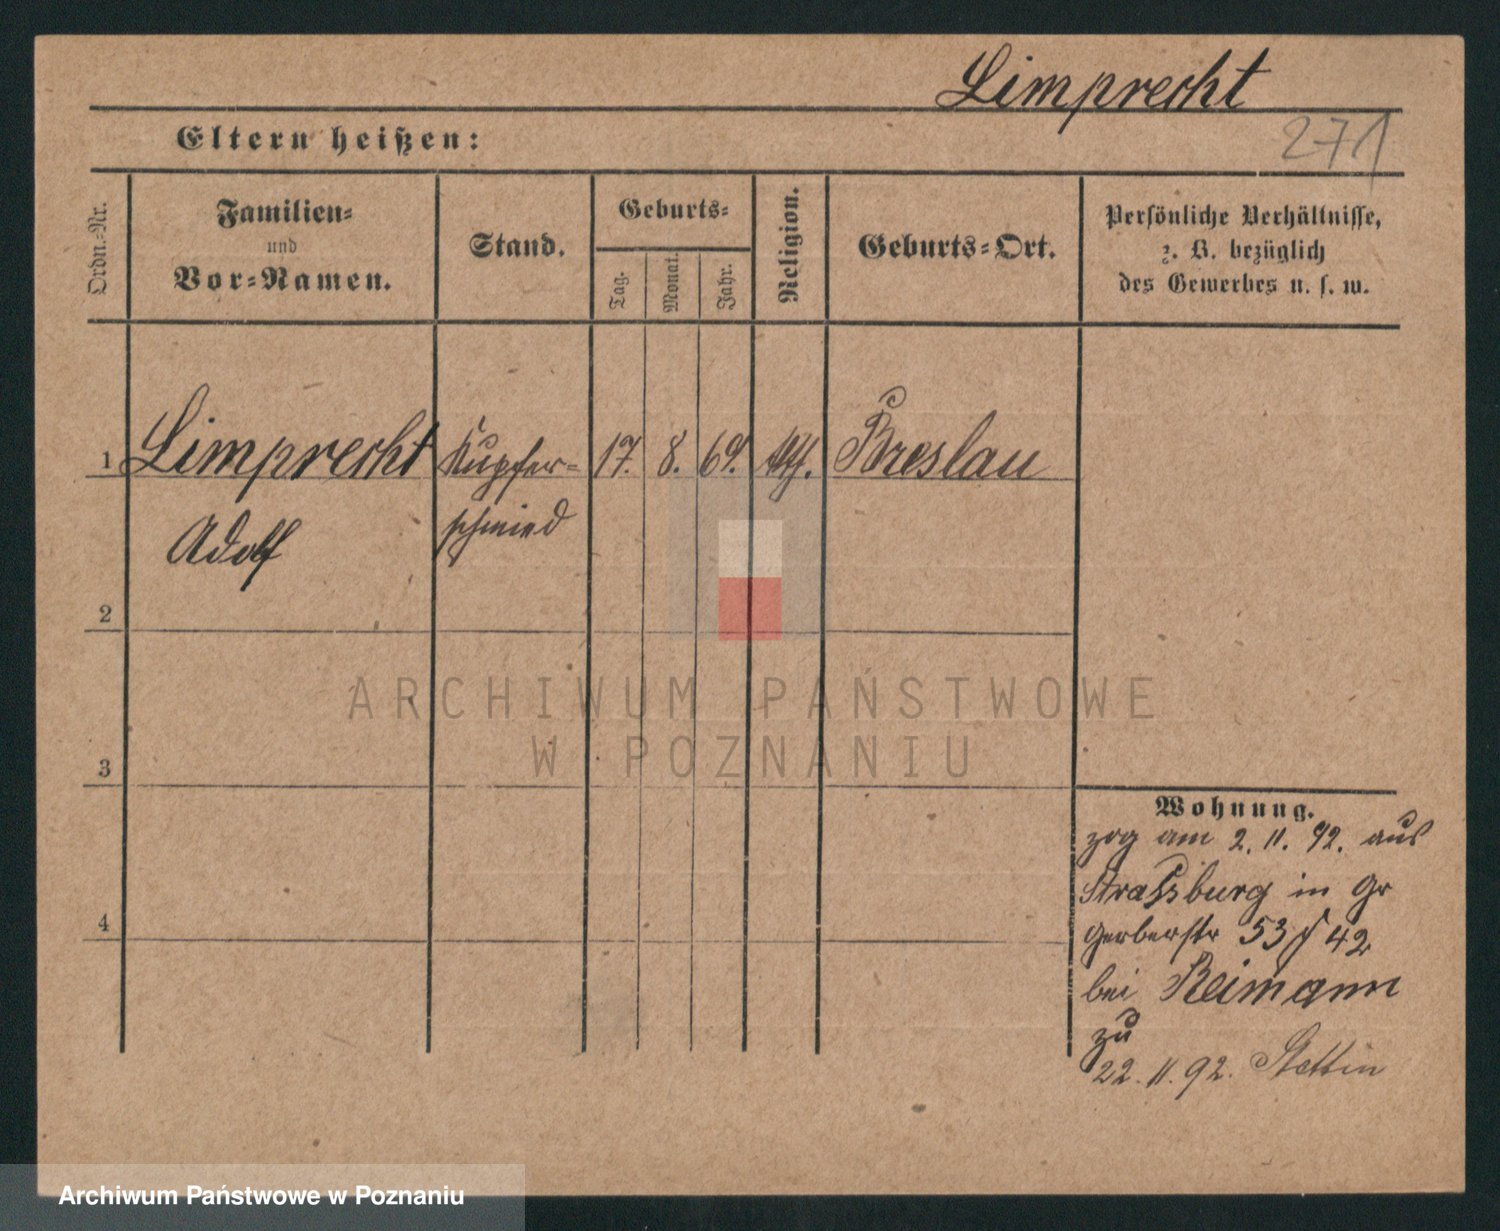 Limprecht
271
Eltern heißen:
Ordn.-Nr.
Familien-
und
Vor-Namen.
Stand.
Geburts-
Tag.
Monat.
Jahr.
Religion.
Geburts-Ort.
Persönliche Verhältnisse,
z. B. bezüglich
des Gewerbes u. s. w.
1 Limprecht Kupfer- 17. 8. 69. Breslau
Adolf schmied
2
3
4
ARCHIWUM PAŃSTWOWE
W POZNANIU
Wohnung.
zog am 2. 11. 92. aus
Strassburg in Gr
Gerberstr 53 42
bei Reimann
zu
22. 11. 92. Stettin
Archiwum Państwowe w Poznaniu